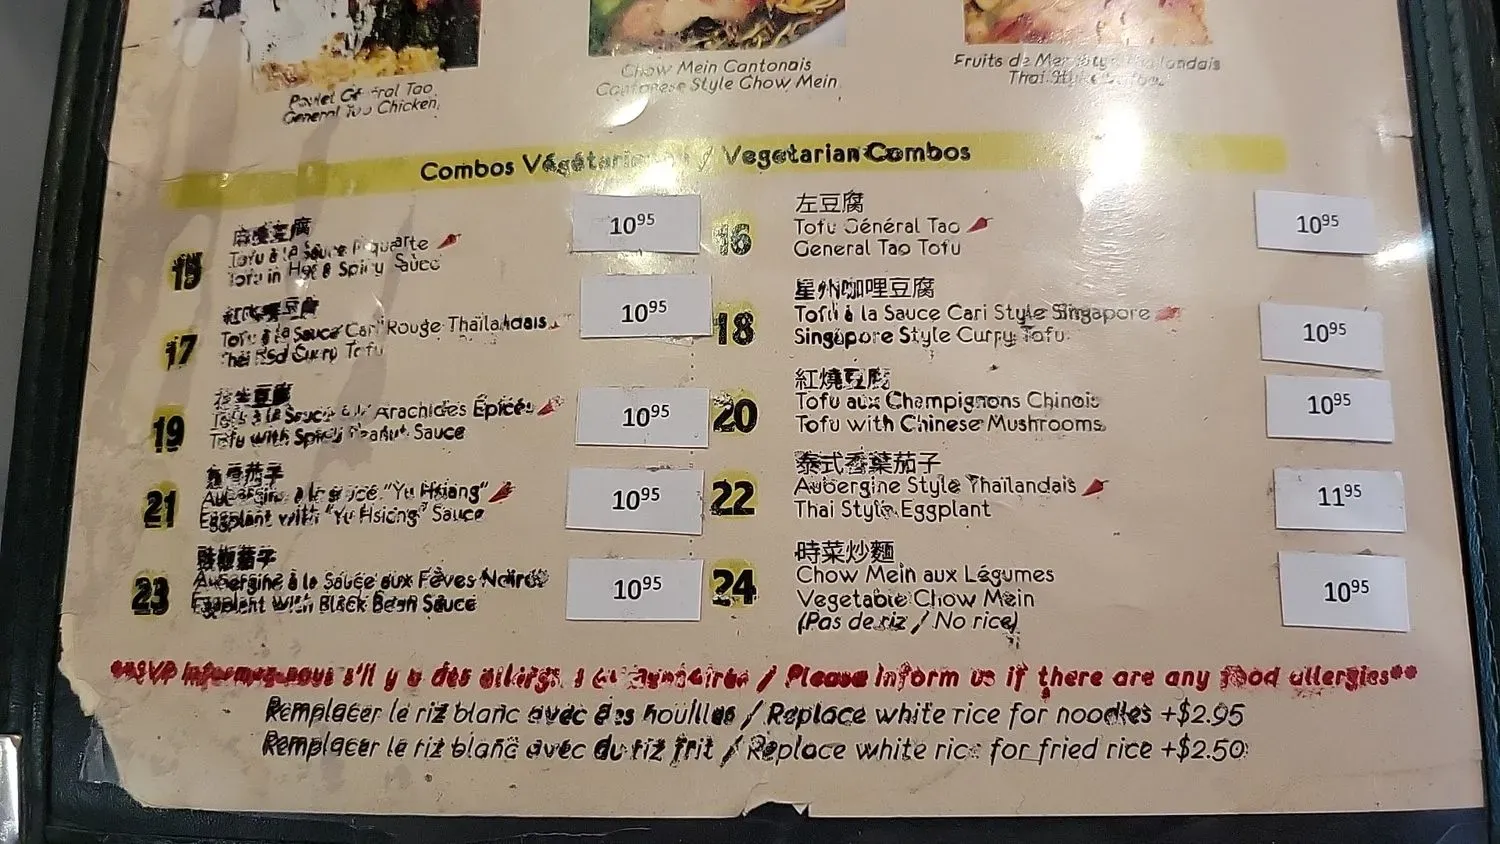 General Tao Chicken
Chow Mein Cantonais
Cantonese Style Chow Mein
Fruits de Mer
Combos / Vegetarian Combos
15
Tofu à la Sauce Piquante
Tofu in Hot & Spicy Sauce
10.95
16
左豆腐
Tofu Général Tao
General Tao Tofu
10.95
17
Tofu à la Sauce Cari Rouge Thaïlandais
Thai Red Curry Tofu
10.95
18
星州咖哩豆腐
Tofu à la Sauce Cari Style Singapore
Singapore Style Curry Tofu
10.95
19
Arachides Épicés
Tofu with Spicy Peanut Sauce
10.95
20
紅燒豆腐
Tofu aux Champignons Chinois
Tofu with Chinese Mushrooms
10.95
21
Aubergine à la sauce "Yu Hsiang"
Eggplant with "Yu Hsiang" Sauce
10.95
22
泰式香葉茄子
Aubergine Style Thaïlandais
Thai Style Eggplant
11.95
23
Aubergine à la Sauce aux Fèves Noires
Eggplant with Black Bean Sauce
10.95
24
時菜炒麵
Chow Mein aux Légumes
Vegetable Chow Mein
(Pas de riz / No rice)
10.95
s'il y a des / Please inform us if there are any food allergies**
Remplacer le riz blanc avec des nouilles / Replace white rice for noodles +$2.95
Remplacer le riz blanc avec du riz frit / Replace white rice for fried rice +$2.50